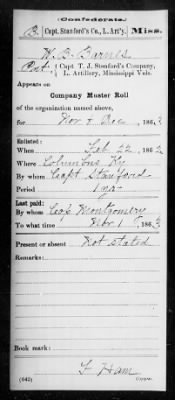 Confederate.
B. Capt. Stanford's Co., L. Art'y. Miss.
W. B. Barnes
Pvt. { Capt. T. J. Stanford's Company, L. Artillery, Mississippi Vols.
Appears on
Company Muster Roll
of the organization named above,
for Nov & Dec, 1863
Enlisted:
When Feb 22, 1862
Where Columbus Ky
By whom Capt Stanford
Period 1 yr
Last paid:
By whom Cap Montgomery
To what time Nov. 1, 1863
Present or absent Not stated
Remarks:
Book mark:
F Ham
(642) Copyist.